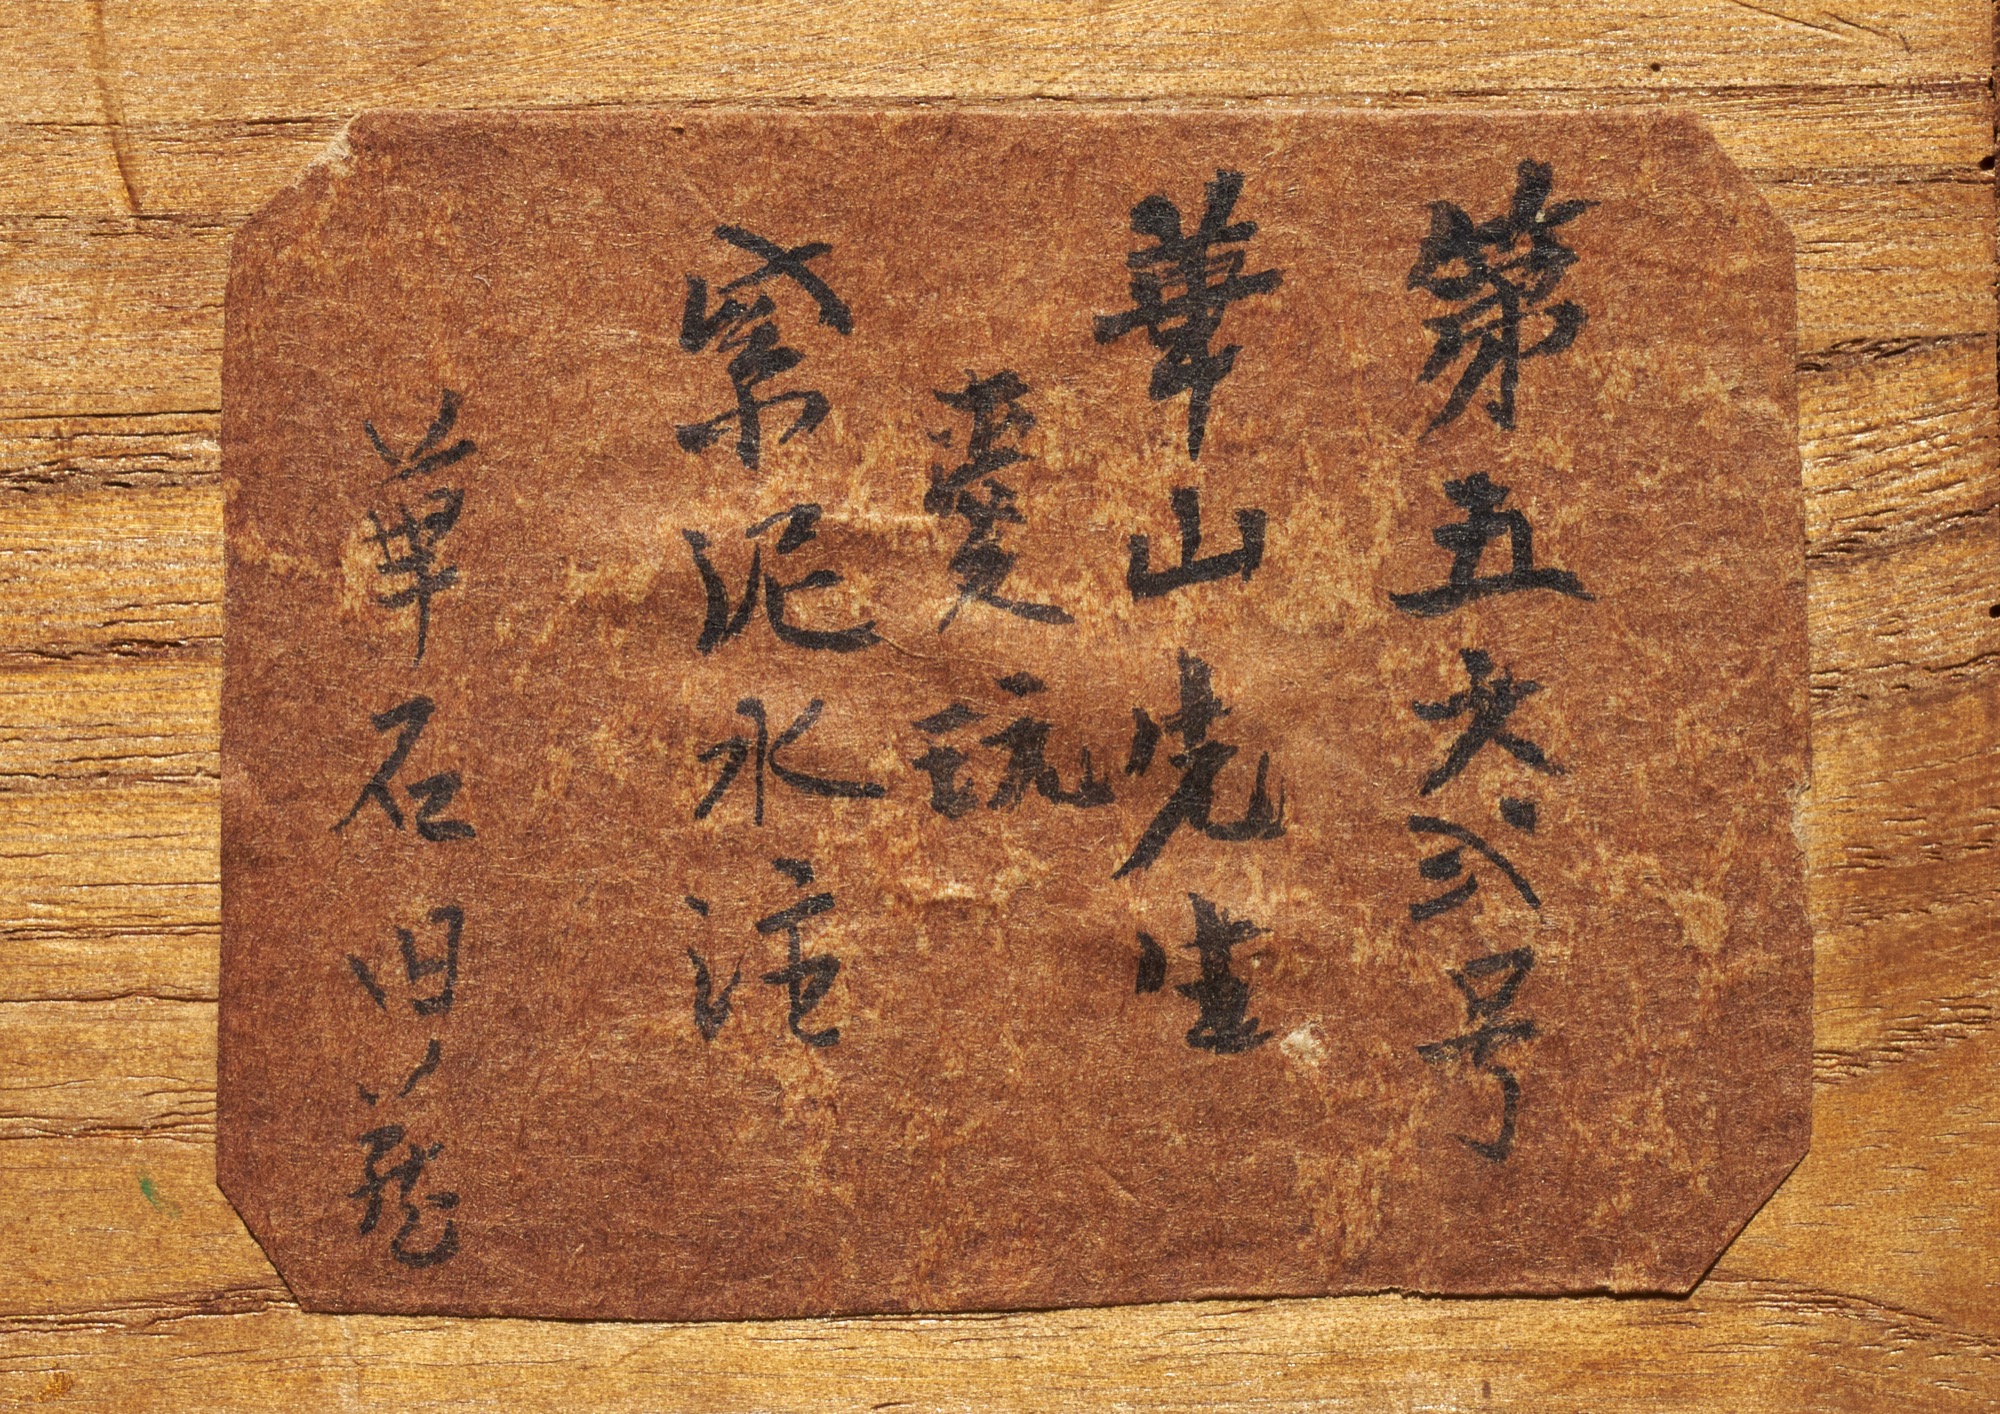 第五六弐号
華山先生
愛玩
紫泥水注
華石旧蔵